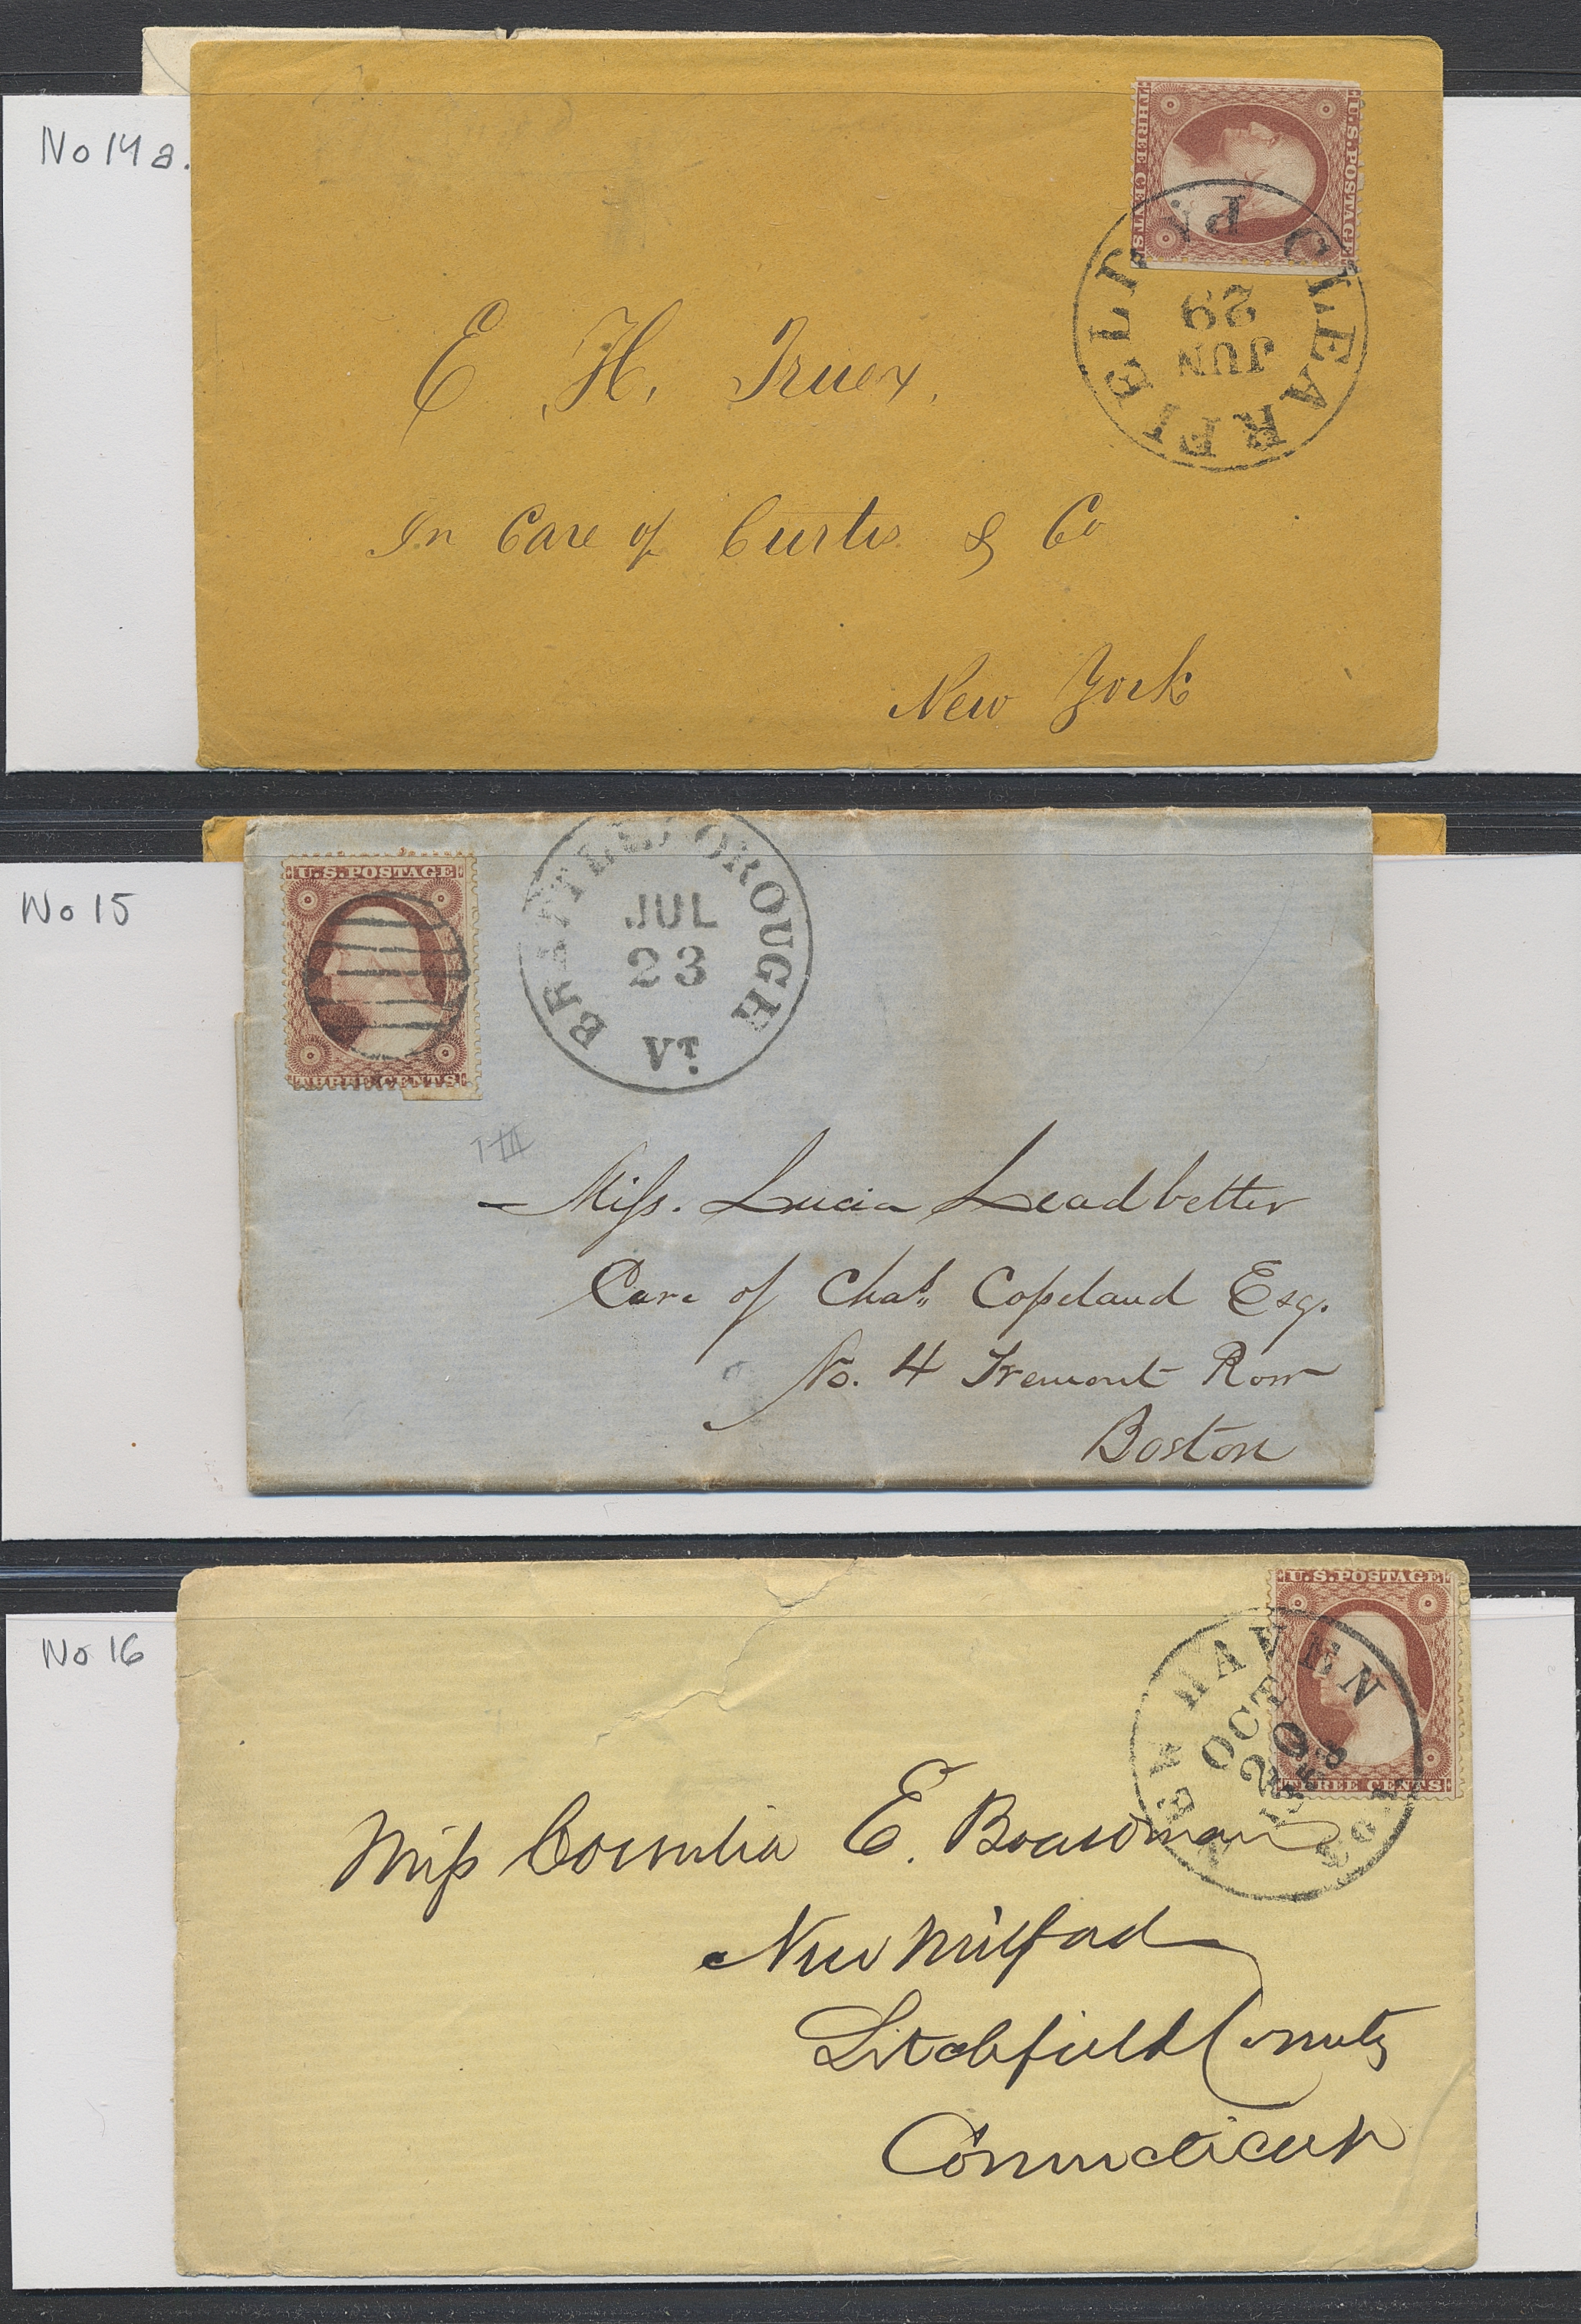 No 14a.
U.S. POSTAGE
THREE CENTS
CLEARFIELD PA
JUN
29
E. H. Truex,
In Care of Curtis & Co
New York
No 15
U.S. POSTAGE
THREE CENTS
BRATTLEBOROUGH
JUL
23
VT.
Miss. Lucia Leadbetter
Care of Chas. Copeland Esq.
No. 4 Tremont Row
Boston
No 16
U.S. POSTAGE
THREE CENTS
NEW HAVEN
OCT
20
Miss Cornelia E. Boardman
New Milford
Litchfield County
Connecticut